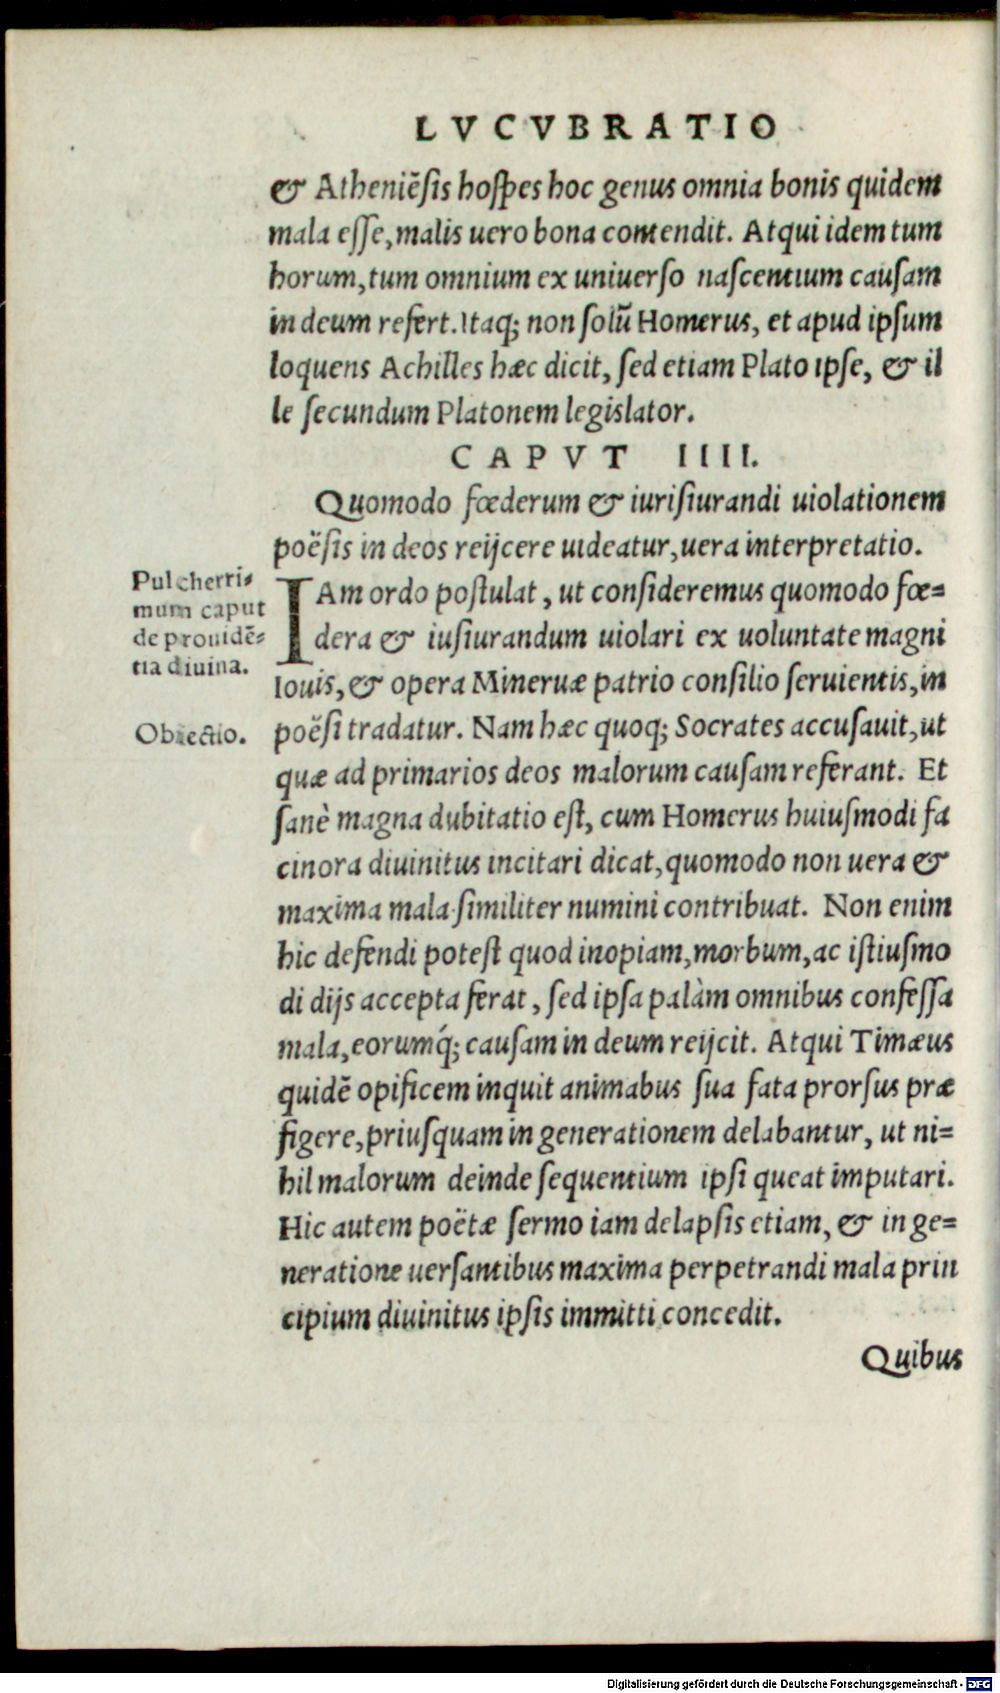 LVCVBRATIO
& Atheniẽsis hospes hoc genus omnia bonis quidem
mala esse, malis uero bona contendit. Atqui idem tum
horum, tum omnium ex uniuerso nascentium causam
in deum refert. Itaq; non solũ Homerus, et apud ipsum
loquens Achilles hæc dicit, sed etiam Plato ipse, & il
le secundum Platonem legislator.
CAPVT IIII.
Quomodo fœderum & iurisiurandi uiolationem
poësis in deos reijcere uideatur, uera interpretatio.
Pulcherri=
mum caput
de prouidẽ=
tia diuina.
IAm ordo postulat, ut consideremus quomodo fœ=
dera & iusiurandum uiolari ex uoluntate magni
Iouis, & opera Mineruæ patrio consilio seruientis, in
Obiectio.
poësi tradatur. Nam hæc quoq; Socrates accusauit, ut
quæ ad primarios deos malorum causam referant. Et
sanè magna dubitatio est, cum Homerus huiusmodi fa
cinora diuinitus incitari dicat, quomodo non uera &
maxima mala similiter numini contribuat. Non enim
hic defendi potest quod inopiam, morbum, ac istiusmo
di dijs accepta ferat, sed ipsa palàm omnibus confessa
mala, eorumq́; causam in deum reijcit. Atqui Timæus
quidẽ opificem inquit animabus sua fata prorsus præ
figere, priusquam in generationem delabantur, ut ni=
hil malorum deinde sequentium ipsi queat imputari.
Hic autem poëtæ sermo iam delapsis etiam, & in ge=
neratione uersantibus maxima perpetrandi mala prin
cipium diuinitus ipsis immitti concedit.
Quibus
Digitalisierung gefördert durch die Deutsche Forschungsgemeinschaft - DFG